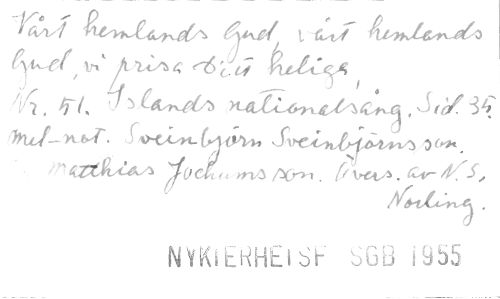 Vårt hemlands Gud, vårt hemlands
Gud, vi prisa Ditt heliga,
Nr. 51. Islands nationalsång. Sid. 35.
mel-not. Sveinbjörn Sveinbjörnsson.
Matthias Jochumsson. Övers. av N.S.
Norling.
NYKTERHETSF SGB 1955